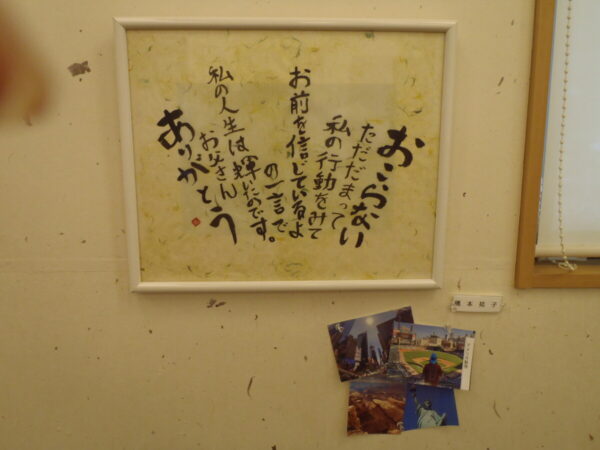 おこらない
ただだまって
私の行動をみて
お前を信じているよ
の一言で
私の人生は輝いたのです。
お父さん
ありがとう
橋本苑子